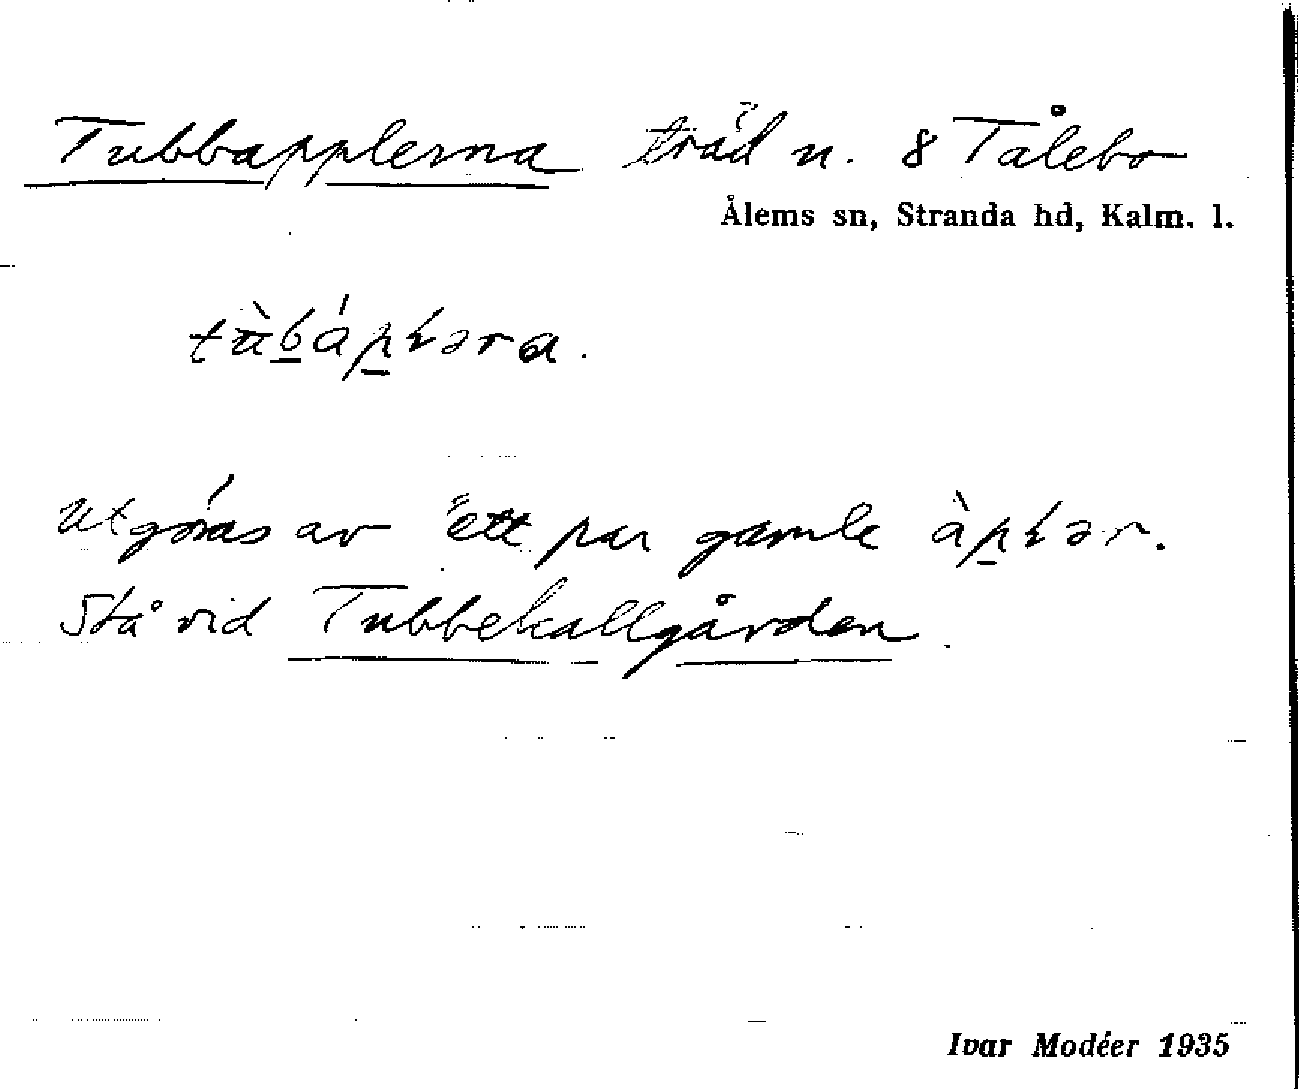 Tubbapplerna träd n. 8 Tålebo
Ålems sn, Stranda hd, Kalm. l.
tùb̲áp̲ɬəra.
Utgöras av ett par gamla àp̲ɬər.
Stå vid Tubbekallgården.
Ivar Modéer 1935